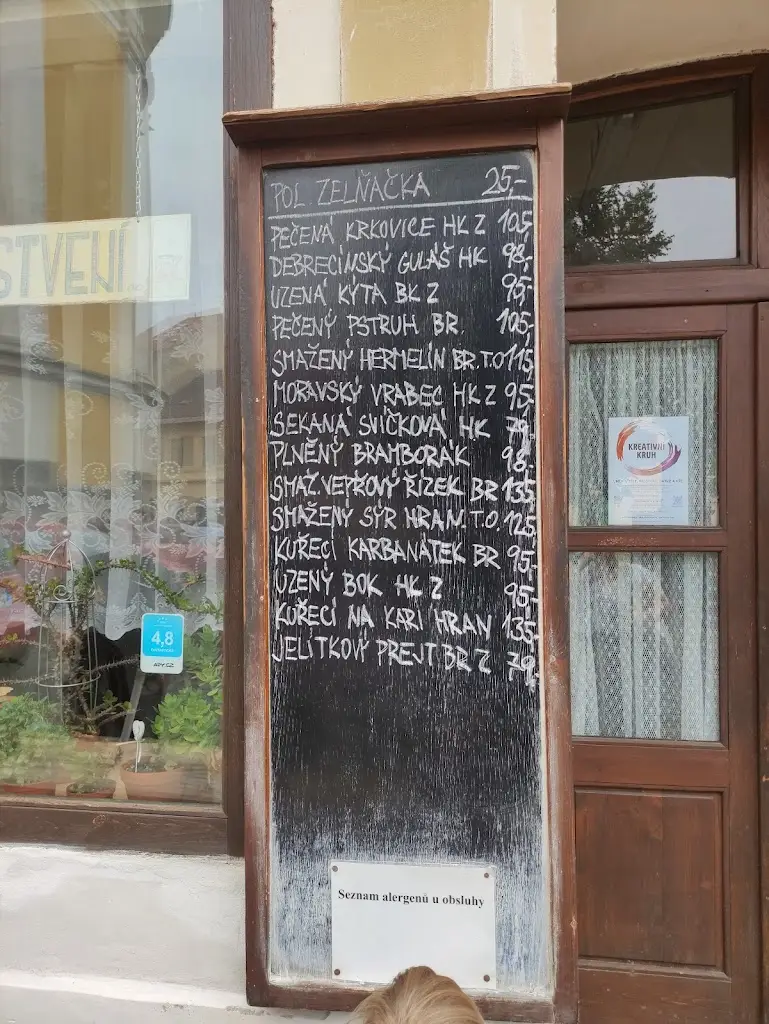 STVENÍ
POL. ZELŇAČKA 25,-
PEČENÁ KRKOVICE HK Z 105,-
DEBRECÍNSKÝ GULÁŠ HK 98,-
UZENÁ KÝTA BK Z 95,-
PEČENÝ PSTRUH BR. 105,-
SMAŽENÝ HERMELÍN BR.T.O 115,-
MORAVSKÝ VRABEC HK Z 95,-
SEKANÁ SVÍČKOVÁ HK 79,-
PLNĚNÝ BRAMBORÁK 98,-
SMAŽ.VEPŘOVÝ ŘÍZEK BR 135,-
SMAŽENÝ SÝR HRAN.T.O. 125,-
KUŘECÍ KARBANÁTEK BR 95,-
UZENÝ BOK HK Z 95,-
KUŘECÍ NA KARI HRAN 135,-
JELÍTKOVÝ PREJT BR Z 79,-
KREATIVNÍ
KRUH
4,8
Seznam alergenů u obsluhy